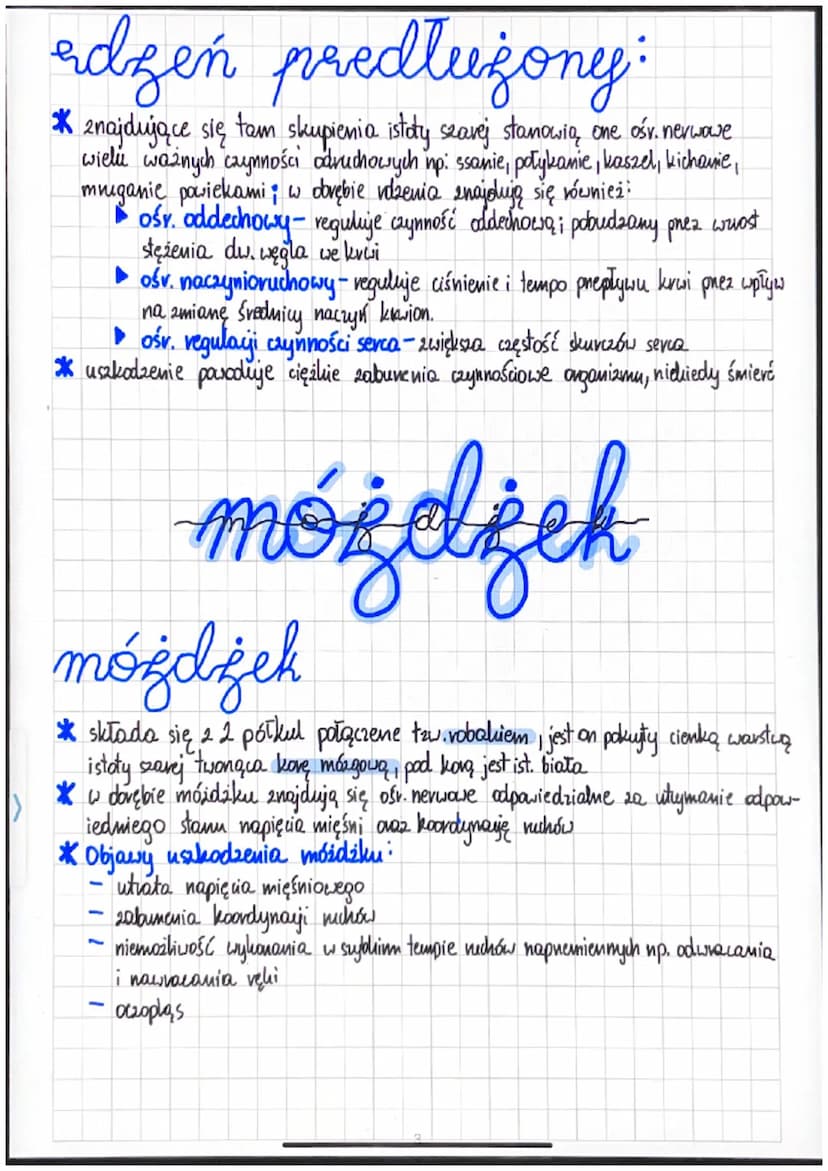 rdzeń przedłużony:
* znajdujące się tam skupienia istoty szarej stanowią one ośr. nerwowe
wielu ważnych czynności odruchowych np: ssanie, połykanie, kaszel, kichanie,
mruganie powiekami; w obrębie rdzenia znajdują się również:
▶ ośr. oddechowy - reguluje czynność oddechową; pobudzany przez wzrost
stężenia dw. węgla we krwi
▶ ośr. naczynioruchowy - reguluje ciśnienie i tempo przepływu krwi przez wpływ
na zmianę średnicy naczyń krwion.
▶ ośr. regulacji czynności serca - zwiększa częstość skurczów serca
* uszkodzenie powoduje ciężkie zaburzenia czynnościowe organizmu, niekiedy śmierć
móżdżek
móżdżek
* składa się z 2 półkul połączone tzw. robakiem, jest on pokryty cienką warstwą
istoty szarej tworząca korę mózgową, pod korą jest ist. biała
* w obrębie móżdżku znajdują się ośr. nerwowe odpowiedzialne za utrzymanie odpow-
iedniego stanu napięcia mięśni oraz koordynację ruchów
* Objawy uszkodzenia móżdżku:
- utrata napięcia mięśniowego
- zaburzenia koordynacji ruchów
- niemożliwość wykonania w szybkim tempie ruchów naprzemiennych np. odwracania
i nawracania ręki
- oczopląs
3